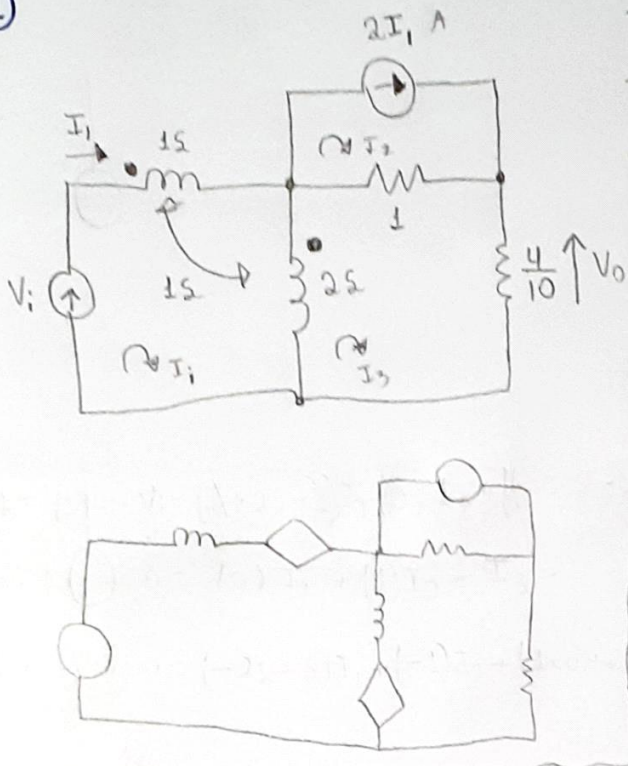 2I₁ A
I₁
1S
I₂
1
Vi
1S
2S
4/10
V₀
Ii
I₃